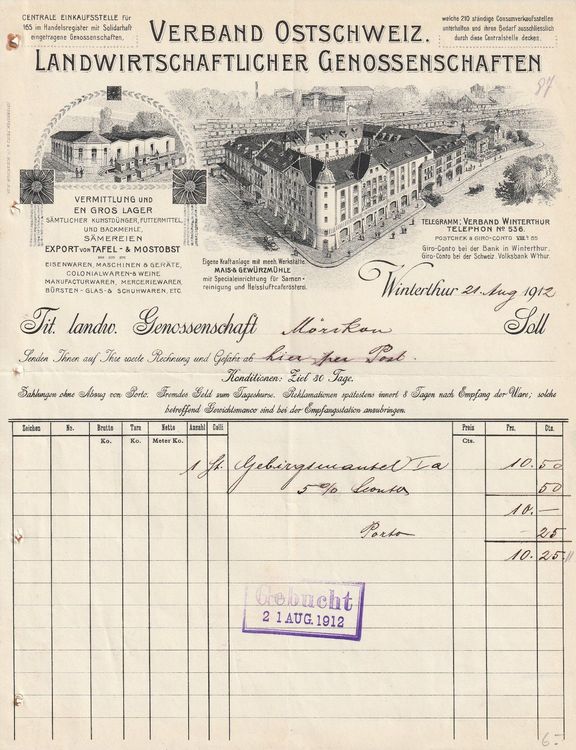 CENTRALE EINKAUFSSTELLE für
165 im Handelsregister mit Solidarhaft
eingetragene Genossenschaften.
VERBAND OSTSCHWEIZ.
welche 210 ständige Consumverkaufsstellen
unterhalten und ihren Bedarf ausschliesslich
durch diese Centralstelle decken.
LANDWIRTSCHAFTLICHER GENOSSENSCHAFTEN
87
VERMITTLUNG UND
EN GROS LAGER
SÄMTLICHER KUNSTDÜNGER, FUTTERMITTEL,
UND BACKMEHLE,
SÄMEREIEN
EXPORT VON TAFEL- & MOSTOBST
EISENWAREN, MASCHINEN & GERÄTE,
COLONIALWAREN & WEINE
MANUFACTURWAREN, MERCERIEWAREN,
BÜRSTEN- GLAS- & SCHUHWAREN, ETC.
Eigene Kraftanlage mit mech. Werkstätte
MAIS & GEWÜRZMÜHLE
mit Specialeinrichtung für Samen-
reinigung und Heissluftcaferösterei.
TELEGRAMM: VERBAND WINTERTHUR
TELEPHON No 536.
POSTCHEK & GIRO-CONTO VIIIb 85
Giro-Conto bei der Bank in Winterthur.
Giro-Conto bei der Schweiz. Volksbank W'thur.
Winterthur 21. Aug 1912
Tit. landw. Genossenschaft Mörikon Soll
Senden Ihnen auf Ihre werte Rechnung und Gefahr ab hier per Post.
Konditionen: Ziel 30 Tage.
Zahlungen ohne Abzug von Porto. Fremdes Geld zum Tageskurse. Reklamationen spätestens innert 8 Tagen nach Empfang der Ware; solche
betreffend Gewichtsmanco sind bei der Empfangsstation anzubringen.
Zeichen No. Brutto Tara Netto Anzahl Colli Preis Frs. Cts.
Ko. Ko. Meter Ko. Cts.
1 St. Gebirgsmantel Ia 10. 50
5 % Sconto 50
10. —
Porto - 25
10. 25
Gebucht
21 AUG. 1912
6.-